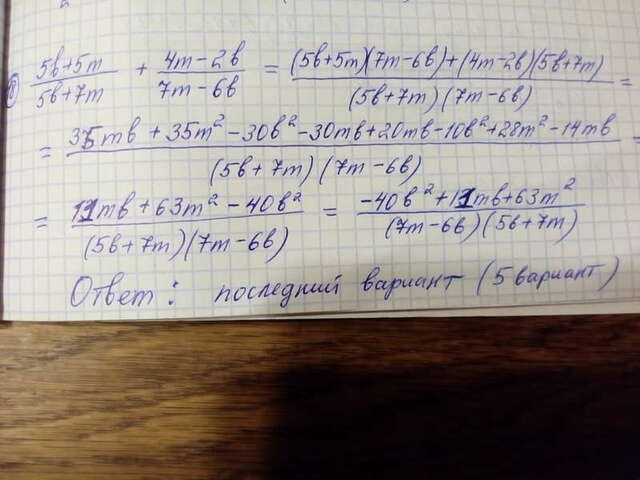 (5b+5m)/(5b+7m) + (4m-2b)/(7m-6b) = ((5b+5m)(7m-6b)+(4m-2b)(5b+7m))/((5b+7m)(7m-6b)) =
= (35mb+35m²-30b²-30mb+20mb-10b²+28m²-14mb)/((5b+7m)(7m-6b)) =
= (11mb+63m²-40b²)/((5b+7m)(7m-6b)) = (-40b²+11mb+63m²)/((7m-6b)(5b+7m))
Ответ: последний вариант (5 вариант)